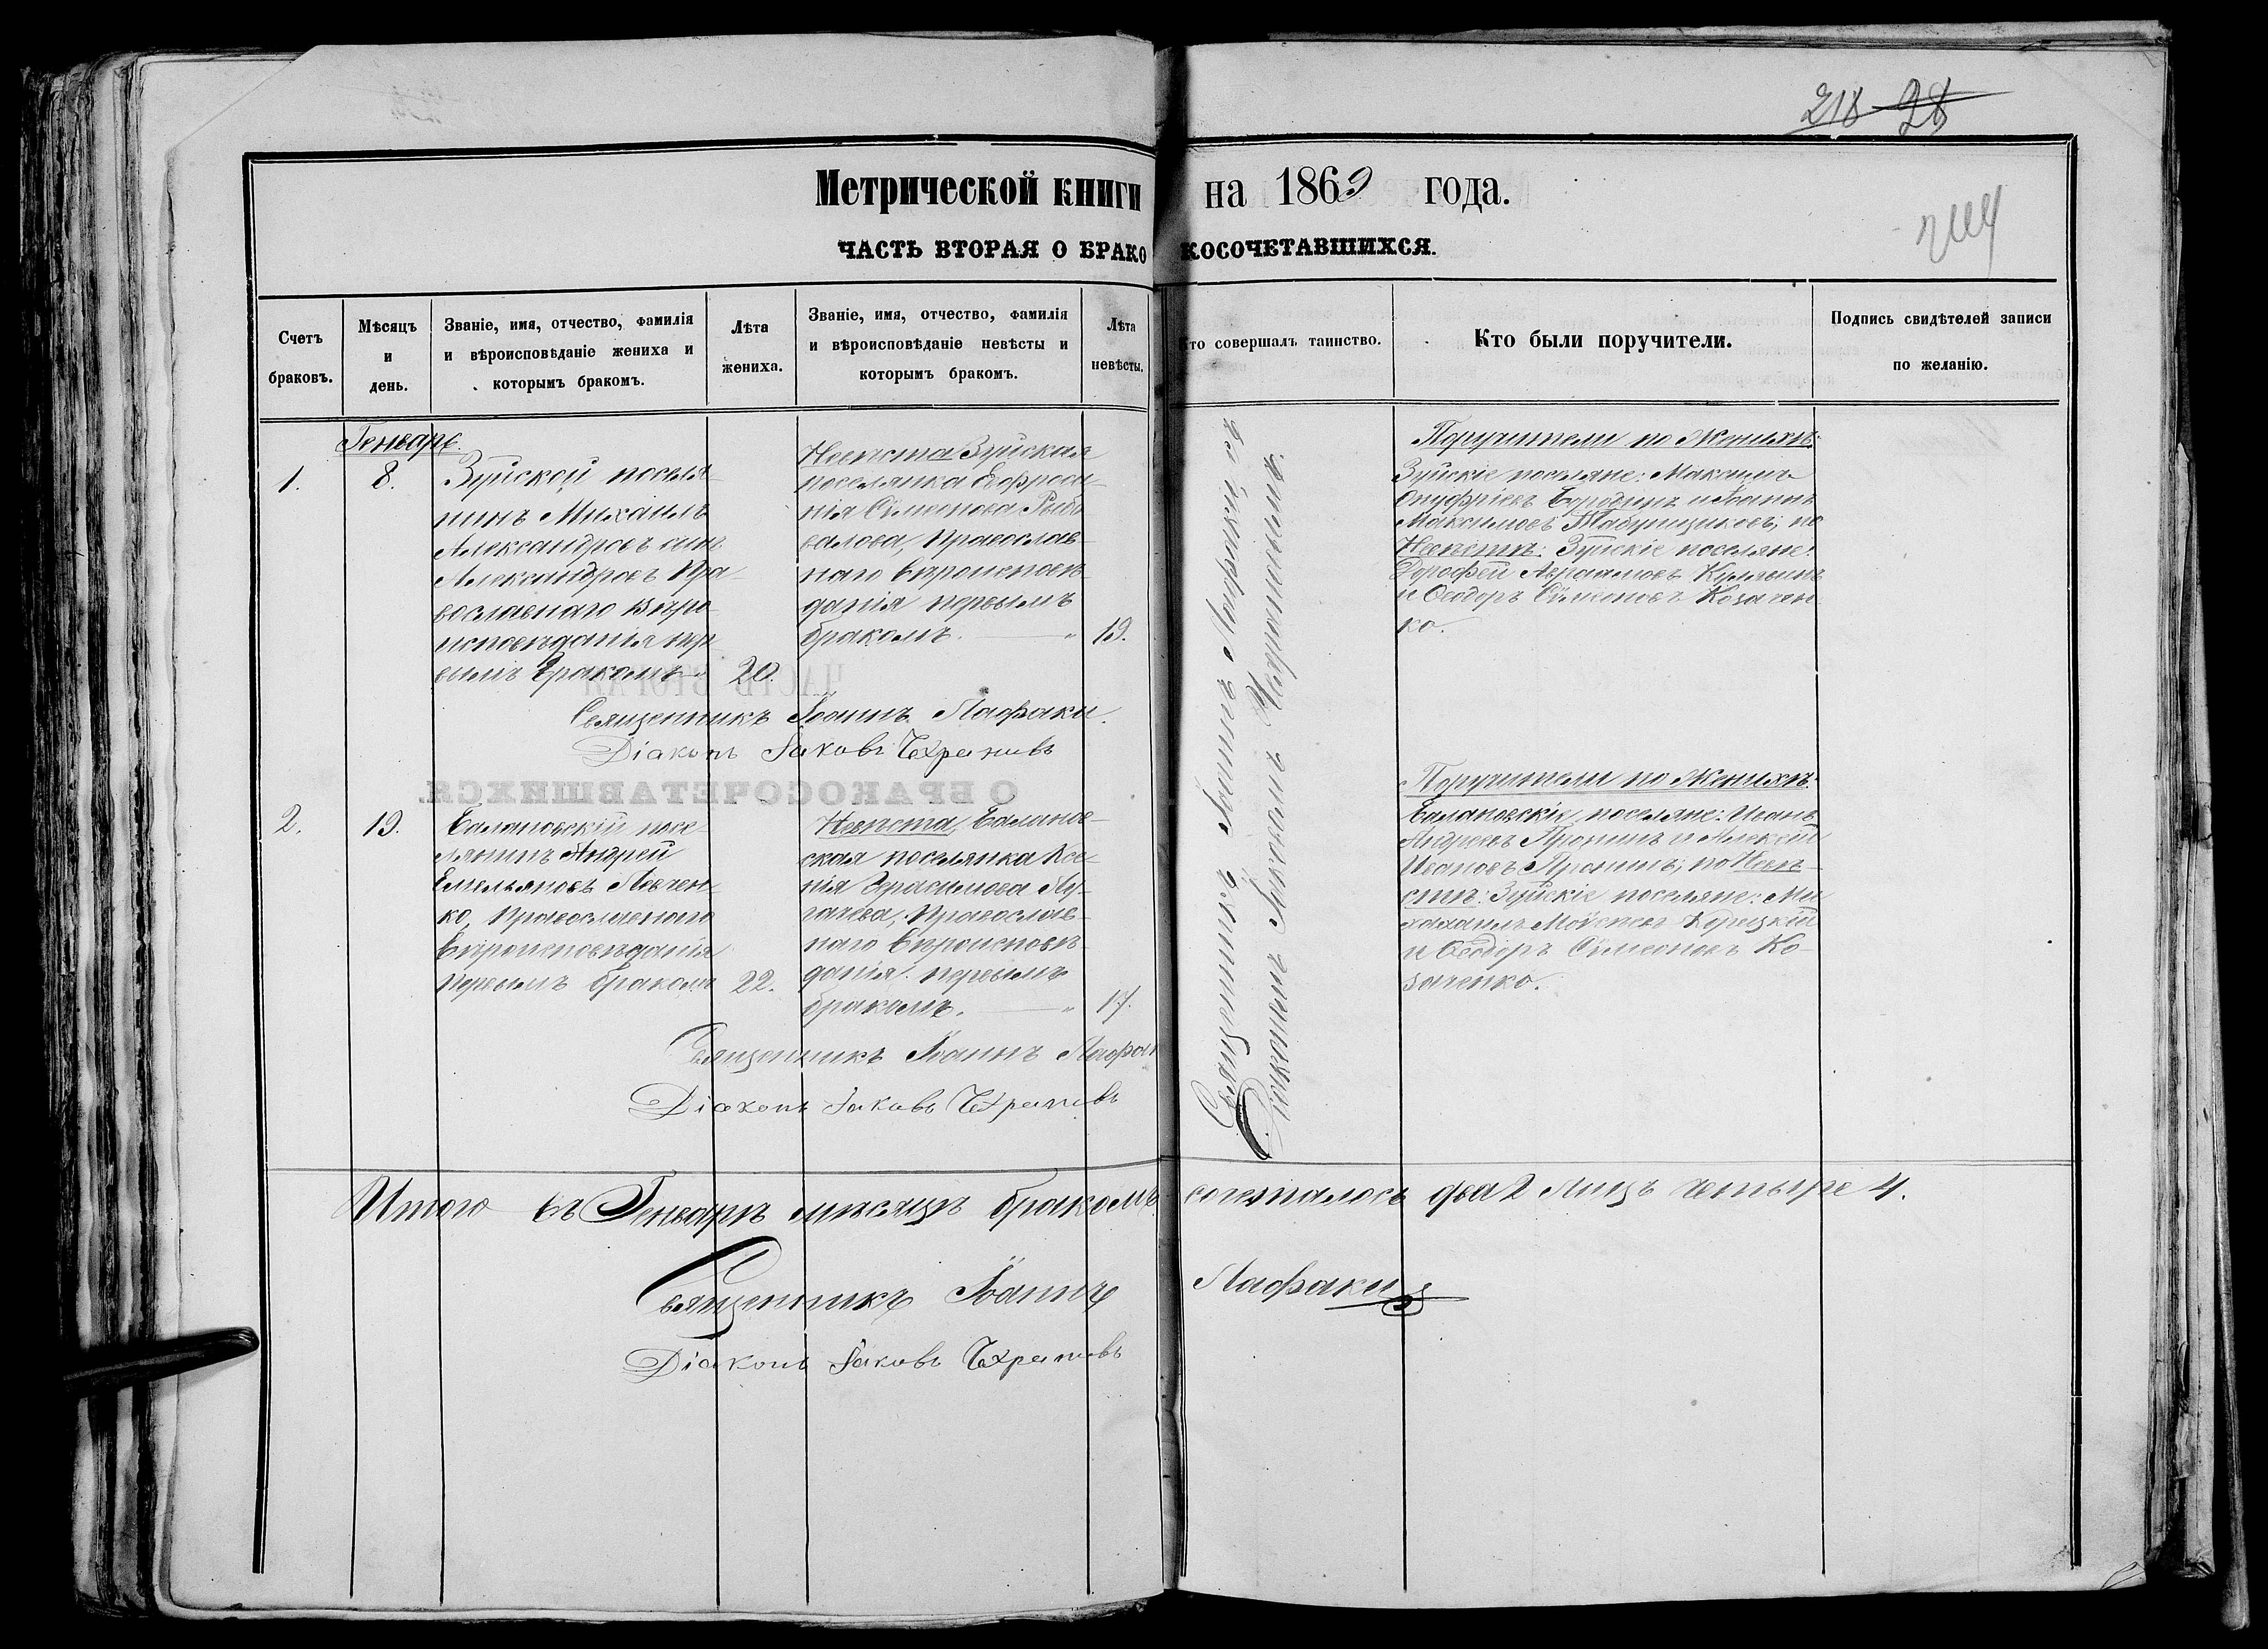 218 28
Метрической книги на 1869 года.
ЧАСТЬ ВТОРАЯ О БРАКОСОЧЕТАВШИХСЯ.
Счетъ браковъ.
Мѣсяцъ и день.
Званіе, имя, отчество, фамилія
и вѣроисповѣданіе жениха и
которымъ бракомъ.
Лѣта жениха.
Званіе, имя, отчество, фамилія
и вѣроисповѣданіе невѣсты и
которымъ бракомъ.
Лѣта невѣсты.
Кто совершалъ таинство.
Кто были поручители.
Подпись свидѣтелей записи
по желанію.
Генварь.
1.
8.
Зуйской поселя-
нинъ Михаилъ
Александровъ сынъ
Александровъ Пра-
вославнаго Вѣро-
исповѣданія пер-
вымъ бракомъ
20.
Невѣста Зуйская
поселянка Евфроси-
нія Симеонова
православ-
наго вѣроисповѣ-
данія первымъ
бракомъ.
19.
Поручители по Женихѣ:
Зуйскіе поселяне: Максимъ
Онуфріевъ и Іоаннъ
Максимовъ Табунщиковъ; по
Невѣстѣ: Зуйскіе поселяне:
Дорофей Авраамовъ
и Ѳеодоръ Симеоновъ Козачен-
ко.
Священникъ Іоаннъ Лафаки.
Діаконъ Іаковъ
2.
19.
посе-
лянинъ Андрей
Емельяновъ Левчен-
ко, Православнаго
Вѣроисповѣданія
Первымъ бракомъ
22.
Невѣста,
ская поселянка Ксе-
нія Герасимова
Православ-
наго Вѣроисповѣ-
данія первымъ
бракомъ.
17.
Поручители по Женихѣ:
поселяне: Иванъ
Андреевъ Пронинъ и Алексѣй
Ивановъ Пронинъ; по Невѣ-
стѣ: Зуйскіе поселяне: Ми-
хаилъ Моисеевъ Корецкій
и Ѳеодоръ Симеоновъ Ко-
заченко.
Священникъ Іоаннъ Лафаки
Діаконъ Іаковъ
Священникъ Іоаннъ Лафаки съ
Діакономъ Іаковомъ
Итого въ Генварѣ мѣсяцѣ бракомъ сочеталось два 2 лицъ четыре 4.
Священникъ Іоаннъ Лафаки
Діаконъ Іаковъ